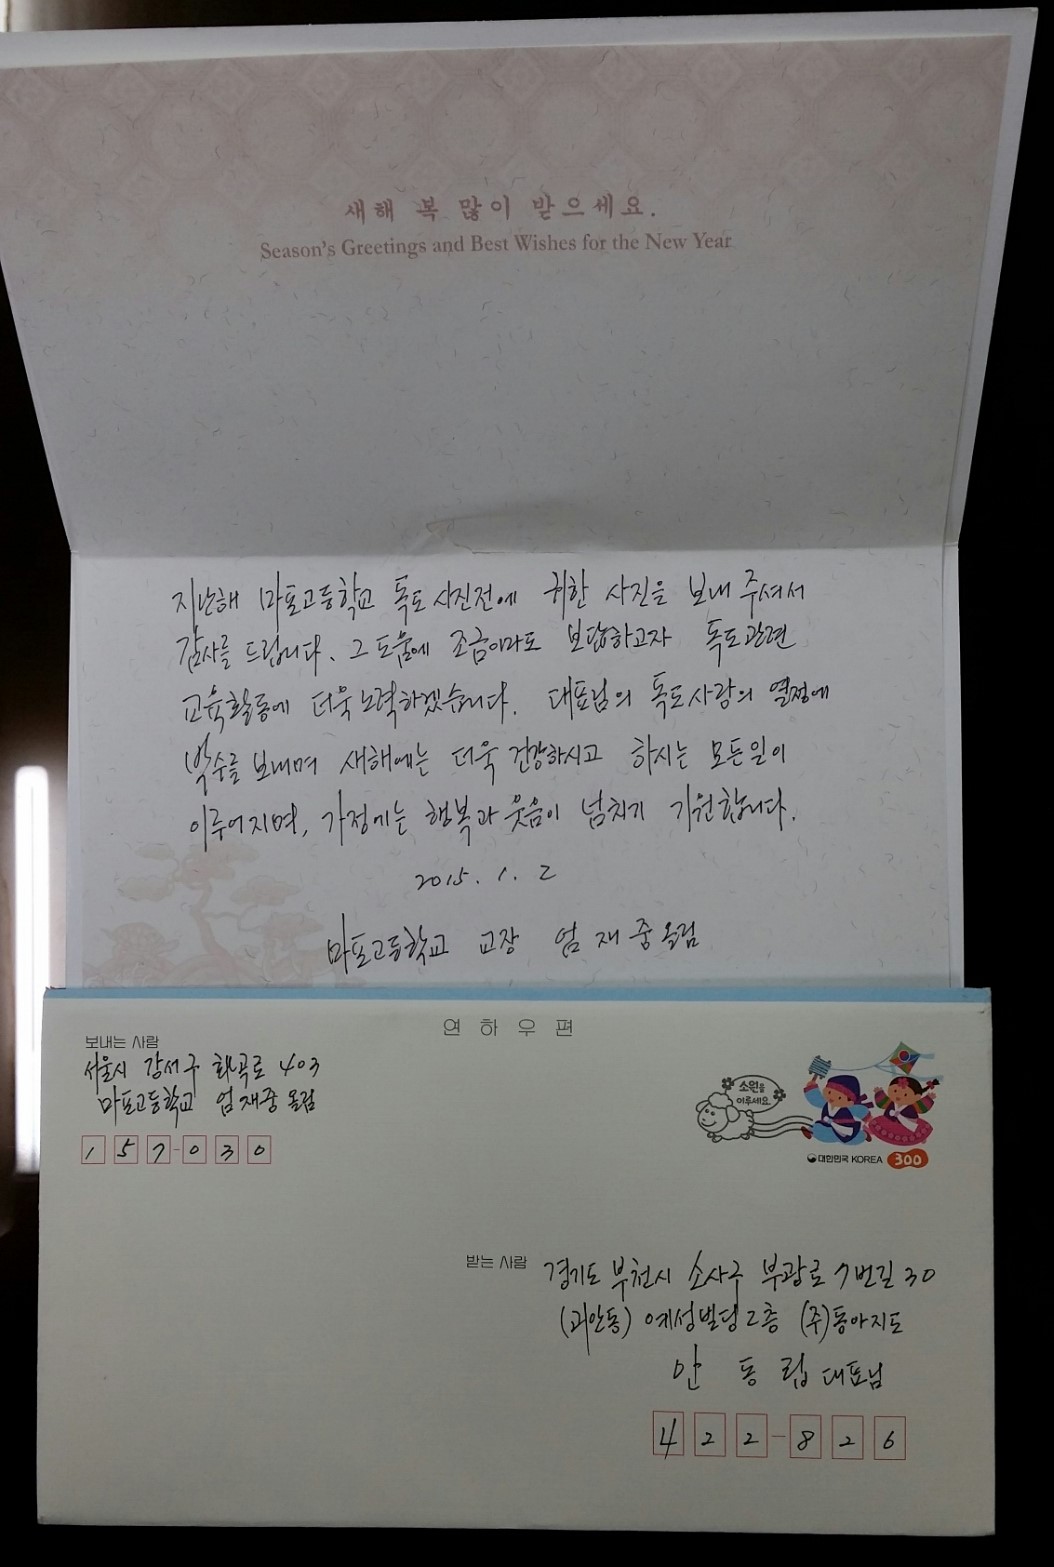 새해 복 많이 받으세요.
Season's Greetings and Best Wishes for the New Year
지난해 마포고등학교 독도 사진전에 귀한 사진을 보내 주셔서
감사를 드립니다. 그 도움에 조금이라도 보답하고자 독도관련
교육활동에 더욱 노력하겠습니다. 대표님의 독도사랑의 열정에
박수를 보내며 새해에는 더욱 건강하시고 하시는 모든일이
이루어지며, 가정에는 행복과 웃음이 넘치기 기원합니다.
2015. 1. 2
마포고등학교 교장 엄재중 올림
연하우편
보내는 사람
서울시 강서구 화곡로 403
마포고등학교 엄재중 올림
157-030
소원을
이루세요
대한민국 KOREA 300
받는 사람
경기도 부천시 소사구 부광로 7번길 30
(괴안동) 예성빌딩 2층 (주)동아지도
안동립 대표님
422-826